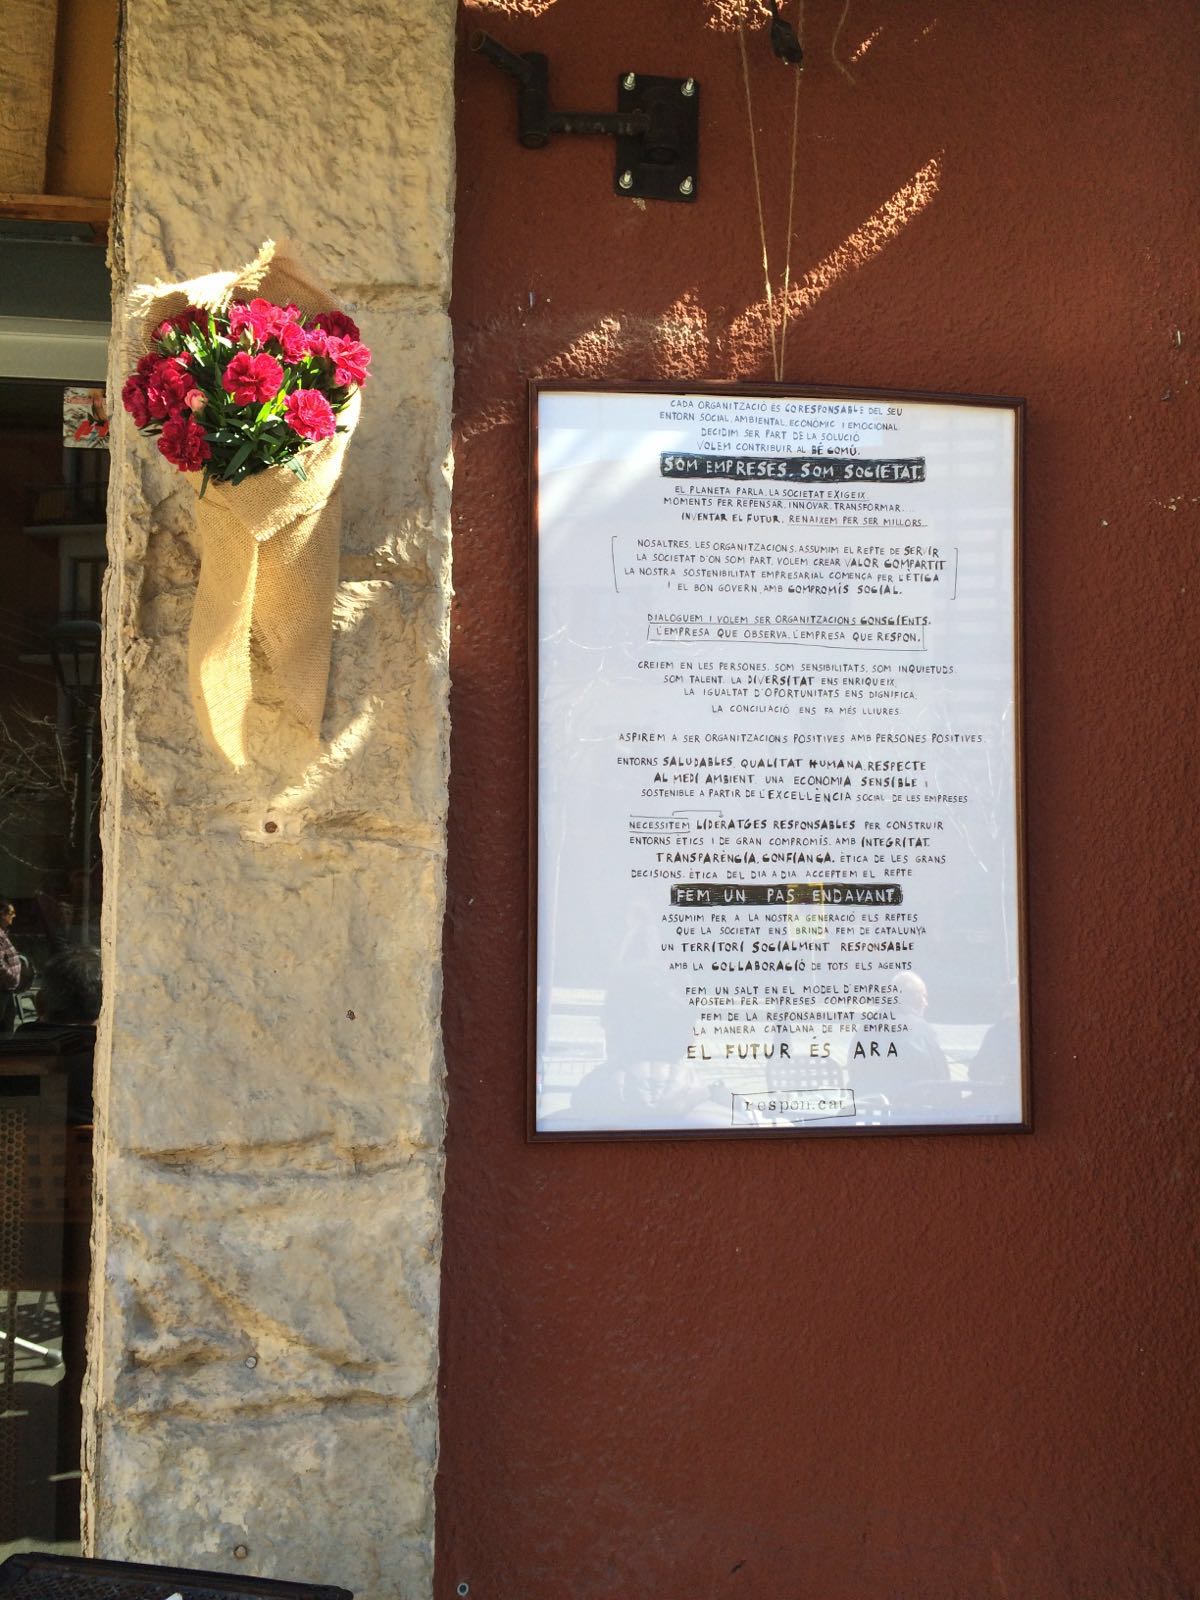 CADA ORGANITZACIÓ ÉS CORESPONSABLE DEL SEU
ENTORN SOCIAL, AMBIENTAL, ECONÒMIC I EMOCIONAL.
DECIDIM SER PART DE LA SOLUCIÓ
VOLEM CONTRIBUIR AL BÉ COMÚ.
SOM EMPRESES. SOM SOCIETAT.
EL PLANETA PARLA, LA SOCIETAT EXIGEIX.
MOMENTS PER REPENSAR, INNOVAR, TRANSFORMAR...
INVENTAR EL FUTUR. RENAIXEM PER SER MILLORS...
NOSALTRES, LES ORGANITZACIONS, ASSUMIM EL REPTE DE SERVIR
LA SOCIETAT D'ON SOM PART. VOLEM CREAR VALOR COMPARTIT
LA NOSTRA SOSTENIBILITAT EMPRESARIAL COMENÇA PER L'ÈTICA
I EL BON GOVERN, AMB COMPROMÍS SOCIAL.
DIALOGUEM I VOLEM SER ORGANITZACIONS CONSCIENTS.
L'EMPRESA QUE OBSERVA. L'EMPRESA QUE RESPON.
CREIEM EN LES PERSONES. SOM SENSIBILITATS, SOM INQUIETUDS.
SOM TALENT. LA DIVERSITAT ENS ENRIQUEIX.
LA IGUALTAT D'OPORTUNITATS ENS DIGNIFICA.
LA CONCILIACIÓ ENS FA MÉS LLIURES.
ASPIREM A SER ORGANITZACIONS POSITIVES AMB PERSONES POSITIVES.
ENTORNS SALUDABLES, QUALITAT HUMANA, RESPECTE
AL MEDI AMBIENT, UNA ECONOMIA SENSIBLE I
SOSTENIBLE A PARTIR DE L'EXCEL·LÈNCIA SOCIAL DE LES EMPRESES
NECESSITEM LIDERATGES RESPONSABLES PER CONSTRUIR
ENTORNS ÈTICS I DE GRAN COMPROMÍS. AMB INTEGRITAT,
TRANSPARÈNCIA, CONFIANÇA. ÈTICA DE LES GRANS
DECISIONS. ÈTICA DEL DIA A DIA ACCEPTEM EL REPTE
FEM UN PAS ENDAVANT
ASSUMIM PER A LA NOSTRA GENERACIÓ ELS REPTES
QUE LA SOCIETAT ENS BRINDA. FEM DE CATALUNYA
UN TERRITORI SOCIALMENT RESPONSABLE
AMB LA COL·LABORACIÓ DE TOTS ELS AGENTS
FEM UN SALT EN EL MODEL D'EMPRESA.
APOSTEM PER EMPRESES COMPROMESES.
FEM DE LA RESPONSABILITAT SOCIAL
LA MANERA CATALANA DE FER EMPRESA
EL FUTUR ÉS ARA
respon.cat